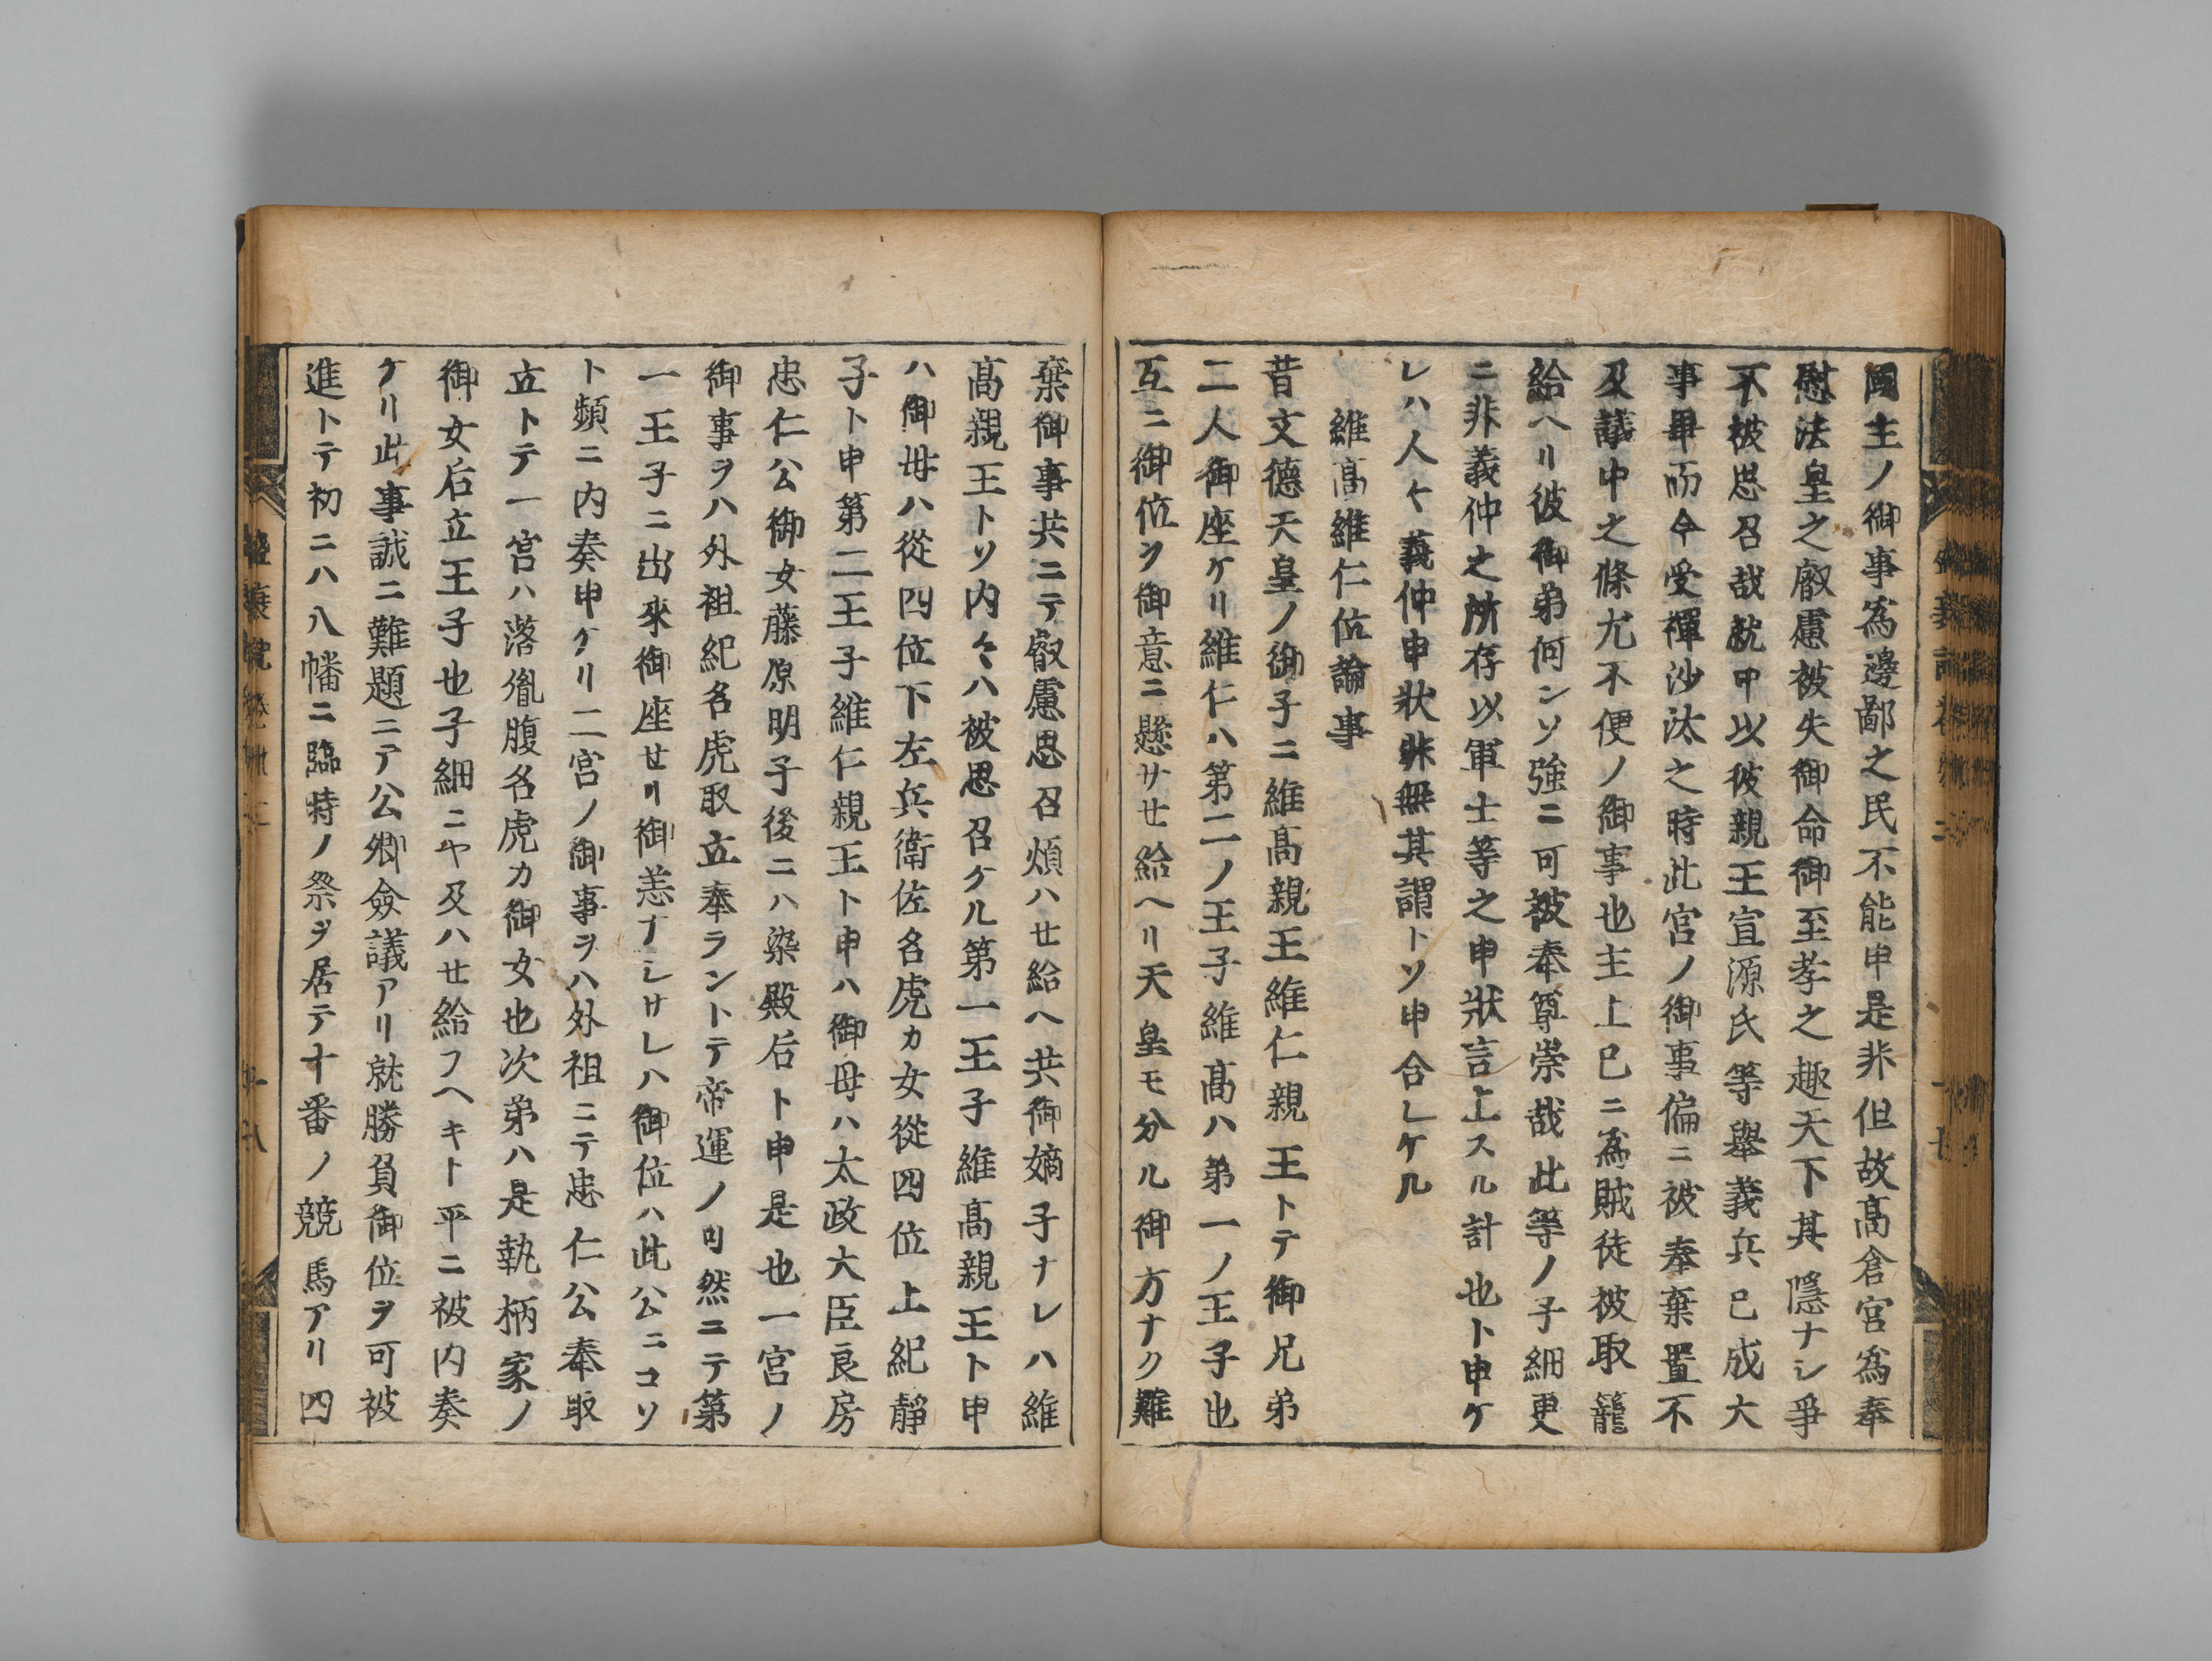 國主ノ御事為邊鄙之民不能申是非但故髙倉宮為奉
慰法皇之叡慮被失御命御至孝之趣天下其隱ナシ爭
不被思召哉就中以彼親王宣源氏等舉義兵已成大
事畢而今受禪沙汰之時此宮ノ御事偏ニ被奉棄置不
及議中之條尤不便ノ御事也主上已ニ為賊徒被取籠
給ヘリ彼御弟何ンソ強ニ可被奉尊崇哉此等ノ子細更
ニ非義仲之所存以軍士等之申狀言上スル計也ト申ケ
レハ人々義仲申狀非無其謂トソ申合レケル
維髙維仁位論事
昔文德天皇ノ御子ニ維髙親王維仁親王トテ御兄弟
二人御座ケリ維仁ハ第二ノ王子維髙ハ第一ノ王子也
互ニ御位ヲ御意ニ懸サセ給ヘリ天皇モ分ル御方ナク難
棄御事共ニテ叡慮思召煩ハセ給ヘ共御嫡子ナレハ維
髙親王トソ内々ハ被思召ケル第一王子維髙親王ト申
ハ御母ハ從四位下左兵衛佐名虎カ女從四位上紀靜
子ト申第二王子維仁親王ト申ハ御母ハ太政大臣良房
忠仁公御女藤原明子後ニハ染殿后ト申是也一宮ノ
御事ヲハ外祖紀名虎取立奉ラントテ帝運ノ可然ニテ第
一王子ニ出來御座セリ御恙ナシサレハ御位ハ此公ニコソ
ト頻ニ内奏申ケリ二宮ノ御事ヲハ外祖ニテ忠仁公奉取
立トテ一宮ハ落胤腹名虎カ御女也次弟ハ是執柄家ノ
御女后立王子也子細ニヤ及ハセ給フヘキト平ニ被内奏
ケリ此事誠ニ難題ニテ公卿僉議アリ就勝負御位ヲ可被
進トテ初ニハ八幡ニ臨時ノ祭ヲ居テ十番ノ競馬アリ四